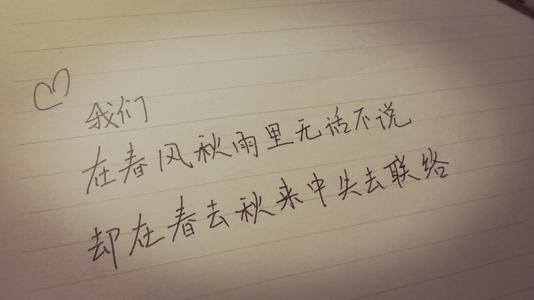 我们
在春风秋雨里无话不说
却在春去秋来中失去联络